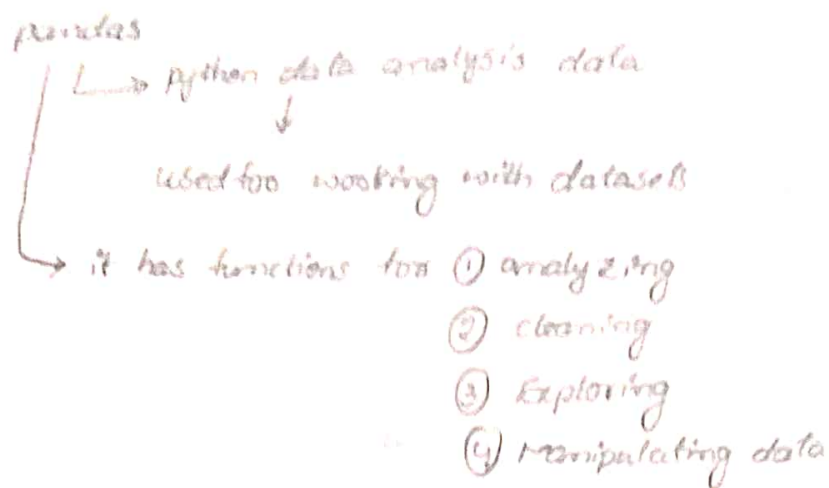 pandas
python data analysis data
used for working with datasets
it has functions for ① analyzing
② cleaning
③ Exploring
④ Manipulating data